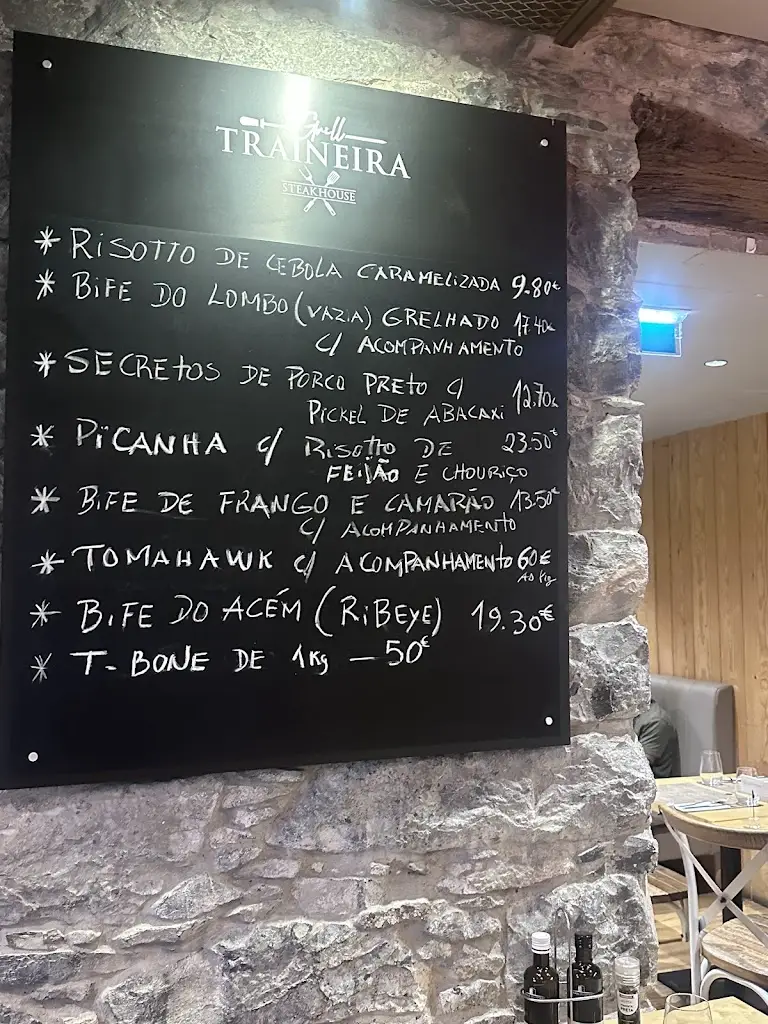 Grill
TRAINEIRA
STEAKHOUSE
* RISOTTO DE CEBOLA CARAMELIZADA 9.80€
* BIFE DO LOMBO (VAZIA) GRELHADO 17.40€
C/ ACOMPANHAMENTO
* SECRETOS DE PORCO PRETO C/ 12,70€
PICKEL DE ABACAXI
* PICANHA C/ RISOTTO DE 23.50€
FEIJÃO E CHOURIÇO
* BIFE DE FRANGO E CAMARÃO 13.50€
C/ ACOMPANHAMENTO
* TOMAHAWK C/ ACOMPANHAMENTO 60€
AO Kg
* BIFE DO ACÉM (RIBEYE) 19.30€
* T-BONE DE 1Kg — 50€